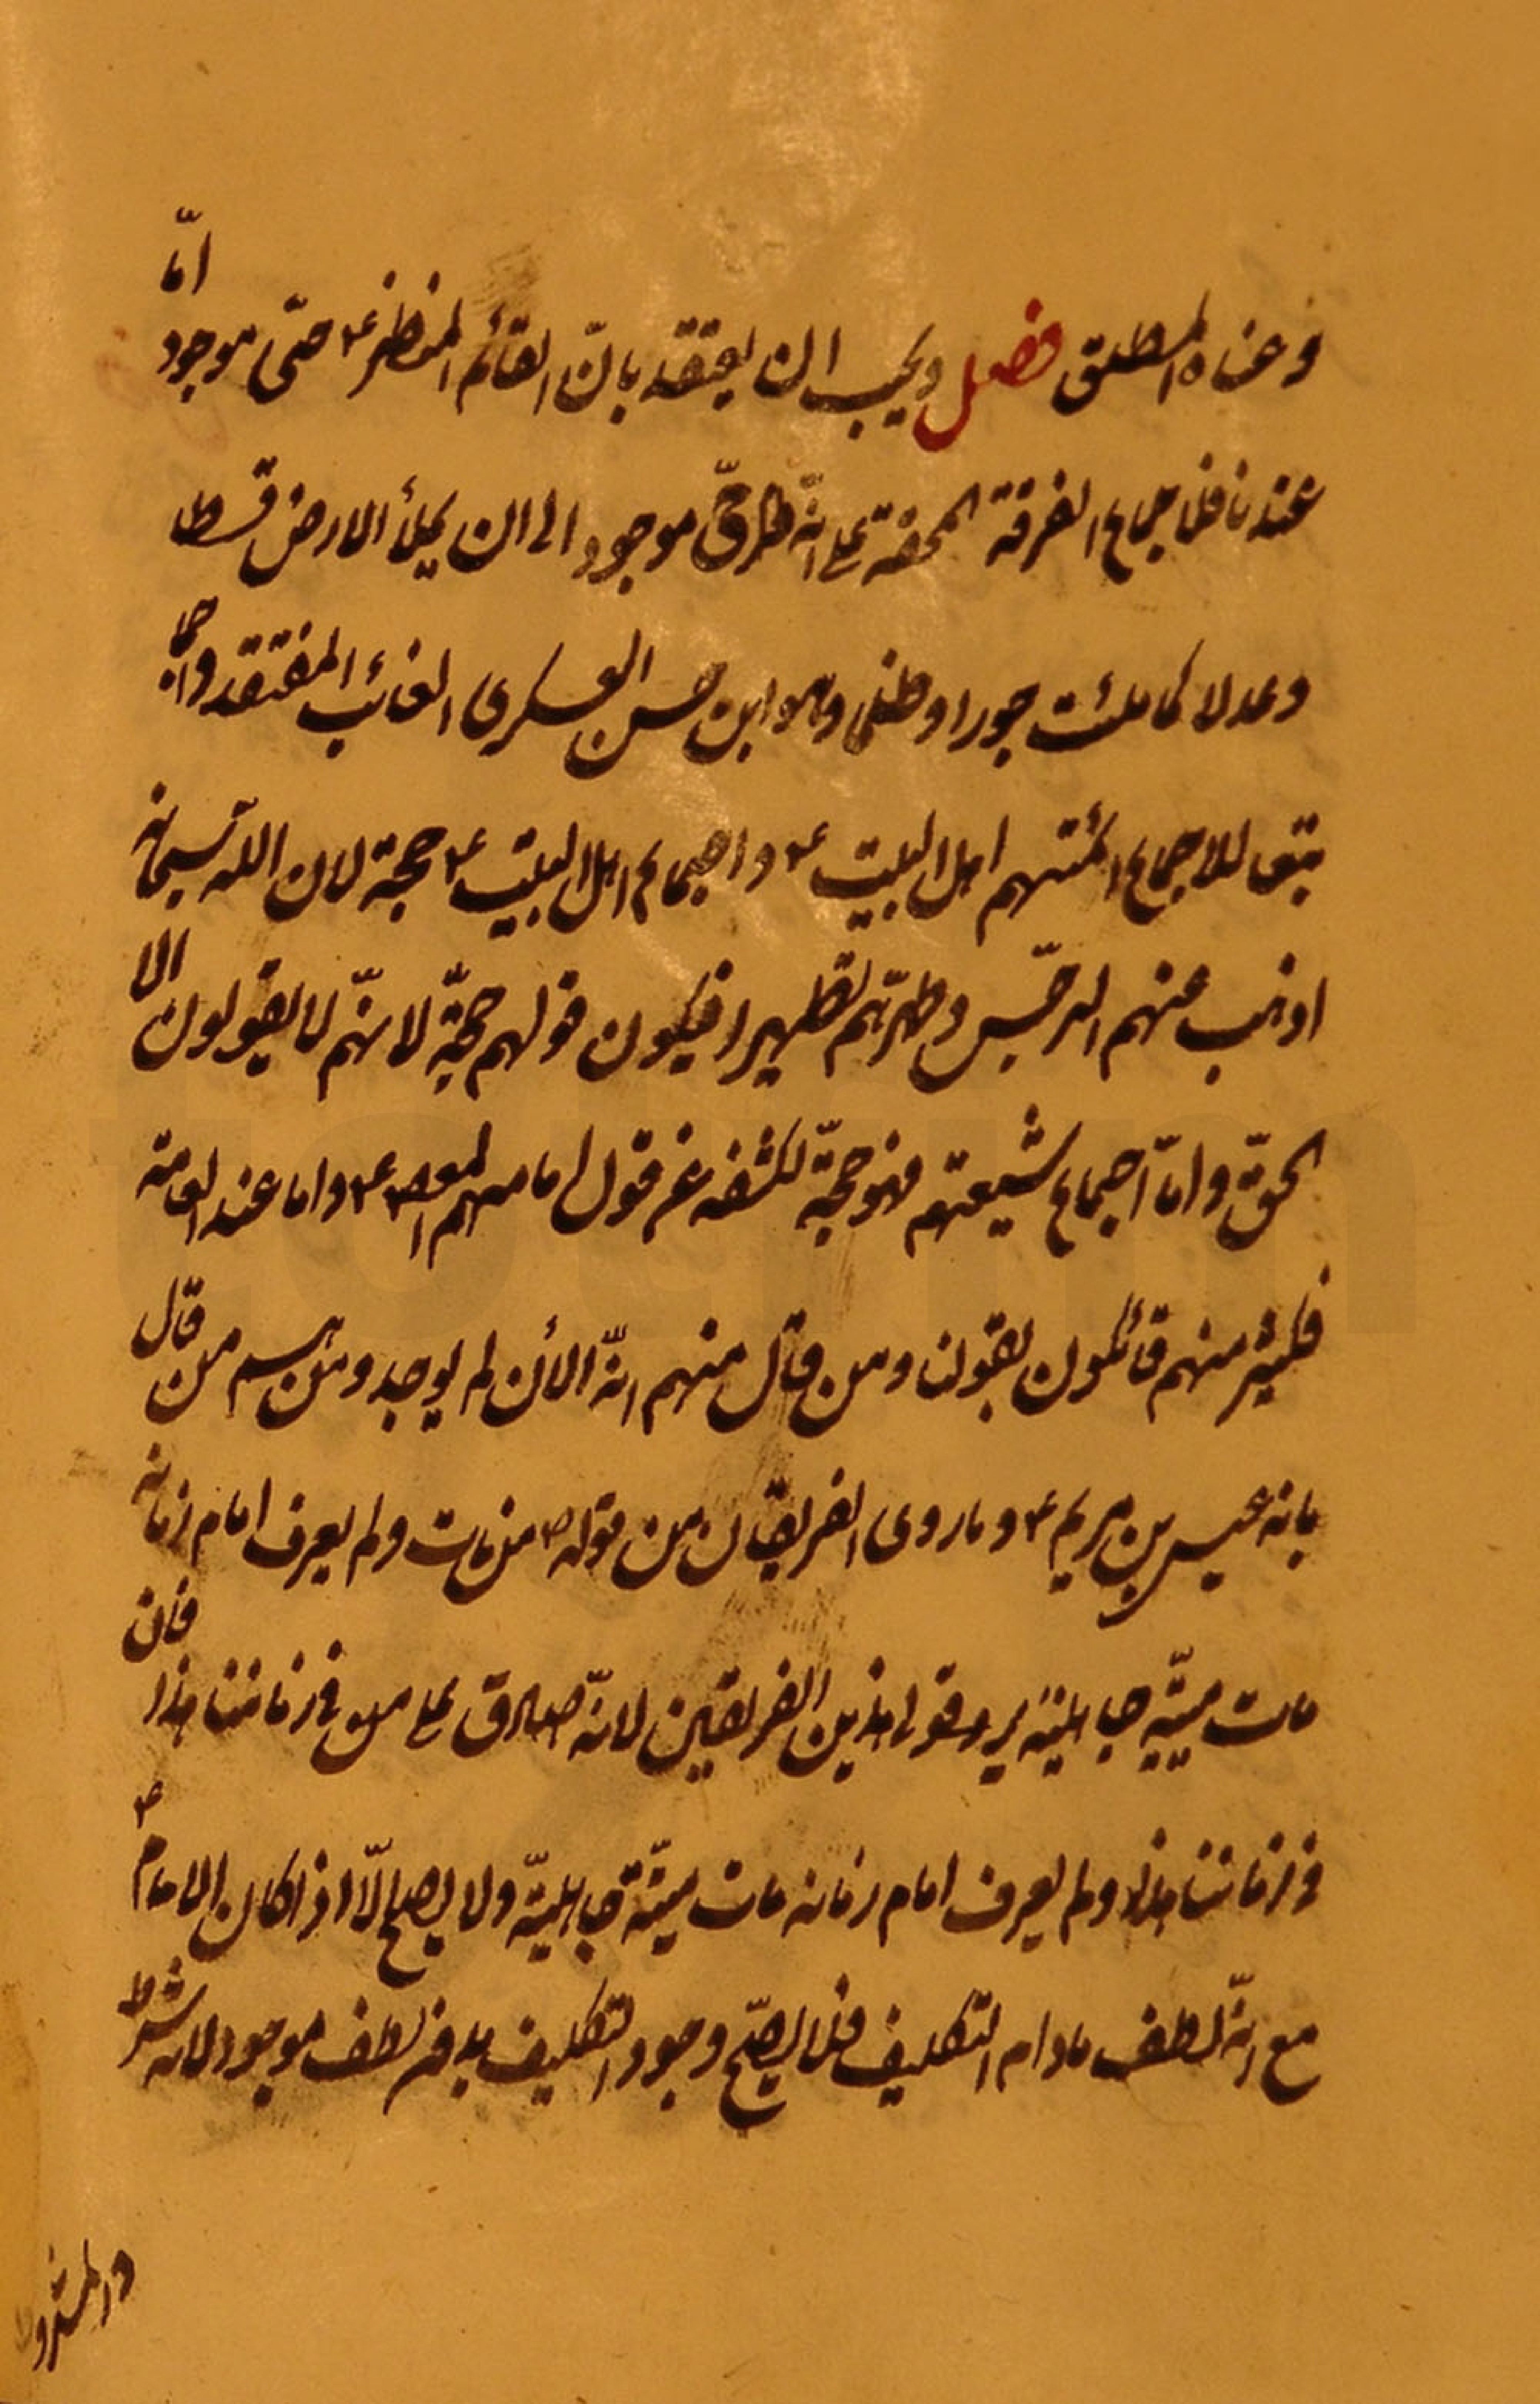 وغناه المطلق فصل ويجب ان يعتقد بانّ القائم المنتظر ع حىّ موجود امّا
عندنا فلاجماع الفرقة المحقة على انّه حىّ موجود الى ان يملأ الارض قسطا
وعدلا كما ملئت جورا وظلما وهو ابن حسن العسكرى الغائب المفتقد واجما
تبعا للاجماع ائمتهم اهل البيت ع واجماع اهل البيت ع حجة لان اللّه سبحانه
اذهب عنهم الرجس وطهّرهم تطهيرا فيكون قولهم حجّة لانهّم لا يقولون الا
الحقّ وامّا اجماع شيعتهم فهو حجّة لكشفه عن قول امامهم المعصوم ع واما عند العامة
فكثير منهم قائلون بقولنا ومن قال منهم انّه الأن لم يوجد ومنهم من قال
بانه عيسى بن مريم ع وما روى الفريقان من قوله ص من مات ولم يعرف امام زمانه
مات ميتّة جاهليّة يرد قول هذين الفريقين لانّه صادق على من فى زماننا هذا فان
فى زماننا هذا ولم يعرف امام زمانه مات ميتّة جاهليّة ولا يصح الّا اذا كان الامام ع
مع انّه لطف مادام التكليف فلا يصّح وجود التكليف بدون لطف موجود لانه شرط
والمشروط